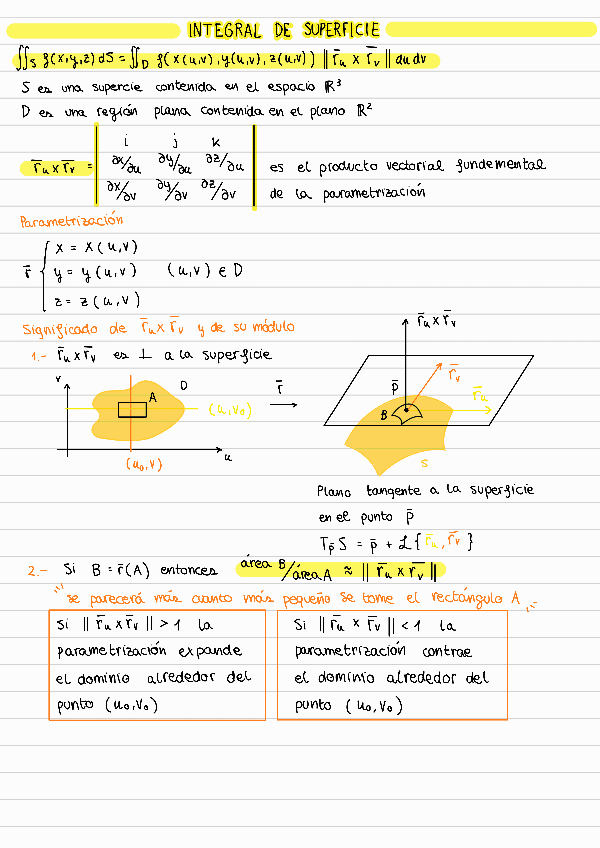 INTEGRAL DE SUPERFICIE
∬_S f(x,y,z) dS = ∬_D f(x(u,v), y(u,v), z(u,v)) ‖r̄u x r̄v‖ du dv
S es una supercie contenida en el espacio ℝ³
D es una región plana contenida en el plano ℝ²
i j k
r̄u x r̄v = ∂x/∂u ∂y/∂u ∂z/∂u es el producto vectorial fundamental
∂x/∂v ∂y/∂v ∂z/∂v de la parametrización
Parametrización
x = x(u,v)
r̄ { y = y(u,v) (u,v) ∈ D
z = z(u,v)
Significado de r̄u x r̄v y de su módulo
1.- r̄u x r̄v es ⊥ a la superficie
r̄u x r̄v
v A D (u,v₀) r̄ p̄ r̄v r̄u B
u
(u₀,v) S
Plano tangente a la superficie
en el punto p̄
Tp̄ S = p̄ + ℒ{r̄u, r̄v}
2.- Si B = r̄(A) entonces área B/área A ≈ ‖r̄u x r̄v‖
"se parecerá más cuanto más pequeño se tome el rectángulo A"
Si ‖r̄u x r̄v‖ > 1 la
parametrización expande
el dominio alrededor del
punto (u₀,v₀)
Si ‖r̄u x r̄v‖ < 1 la
parametrización contrae
el dominio alrededor del
punto (u₀,v₀)